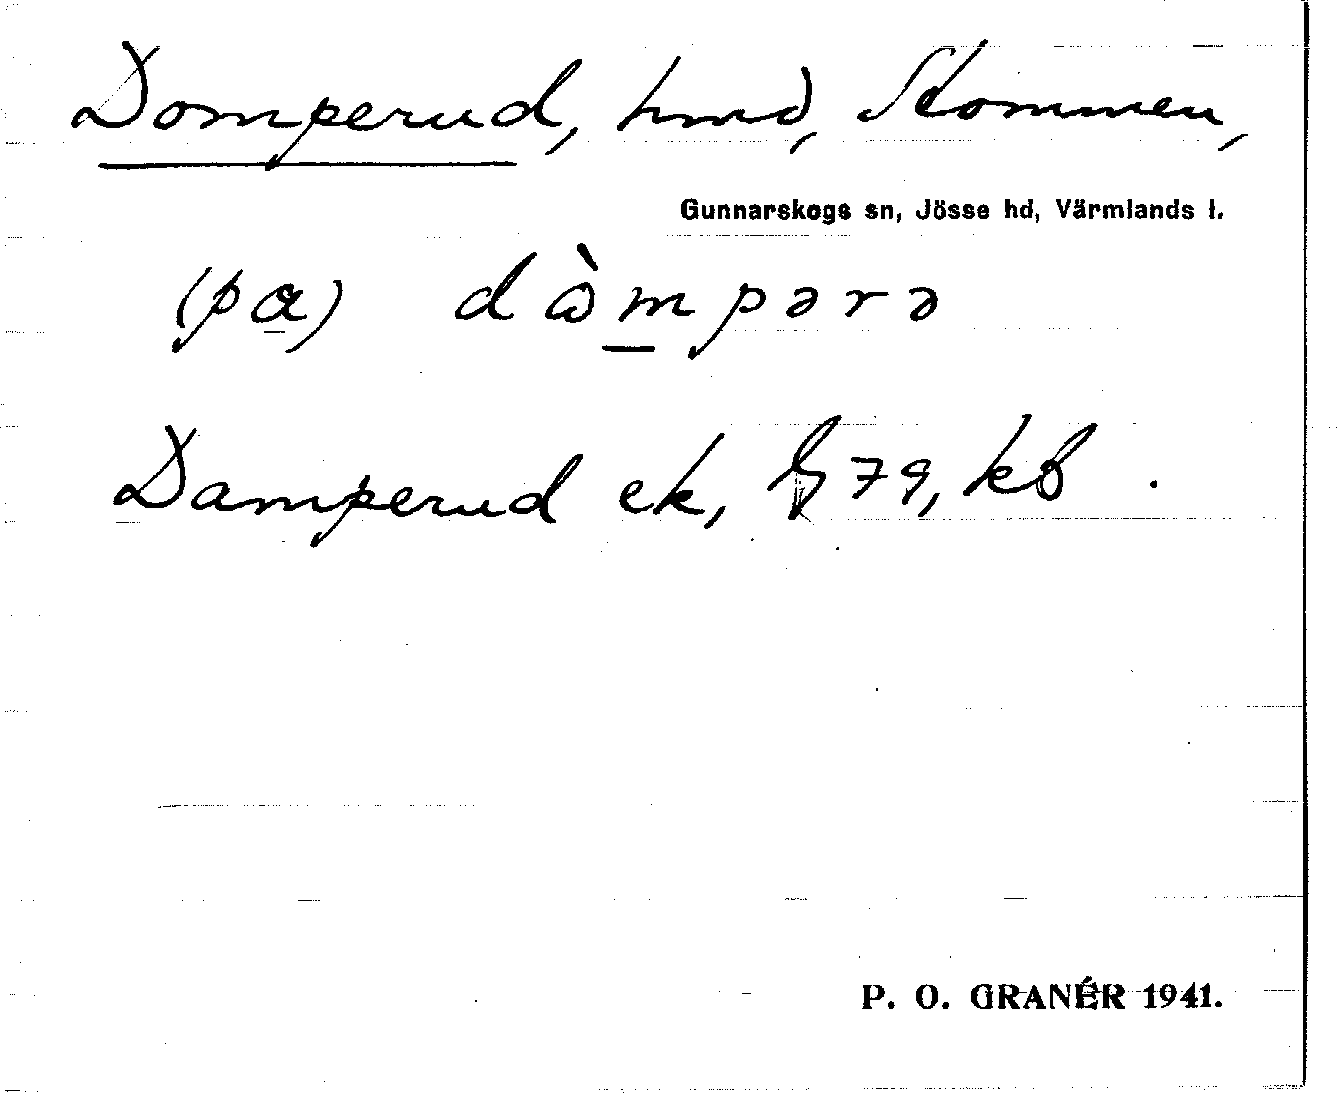 Domperud, hmd, Stommen,
Gunnarskogs sn, Jösse hd, Värmlands l.
(pa) dὼmpərə
Damperud ek, 79, kb.
P. O. GRANÉR 1941.